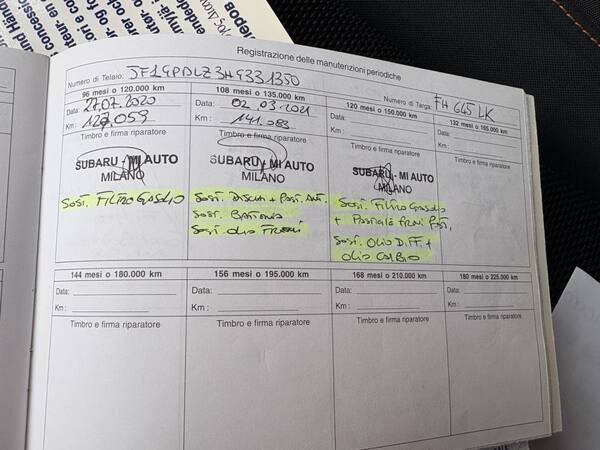 Registrazione delle manutenzioni periodiche
Numero di Telaio: JF1GPDLZ3HG331350
Numero di Targa: FH 645 LK
96 mesi o 120.000 km
Data: 27.07.2020
Km: 127,059
Timbro e firma riparatore
SUBARU - MI AUTO
MILANO
Sost. FILTRO GASOLIO
108 mesi o 135.000 km
Data: 02.03.2021
Km: 141.083
Timbro e firma riparatore
SUBARU - MI AUTO
MILANO
Sost. DISCHI + PAST. ANT.
Sost. BATTERIA
Sost. OLIO FRENI
120 mesi o 150.000 km
Data:
Km:
Timbro e firma riparatore
SUBARU - MI AUTO
MILANO
Sost. FILTRO GASOLIO
+ PASTIGLIE FRENI POST.
Sost. OLIO DIFF. +
OLIO CAMBIO
132 mesi o 165.000 km
Data:
Km:
Timbro e firma riparatore
144 mesi o 180.000 km
Data:
Km:
Timbro e firma riparatore
156 mesi o 195.000 km
Data:
Km:
Timbro e firma riparatore
168 mesi o 210.000 km
Data:
Km:
Timbro e firma riparatore
180 mesi o 225.000 km
Data:
Km:
Timbro e firma riparatore